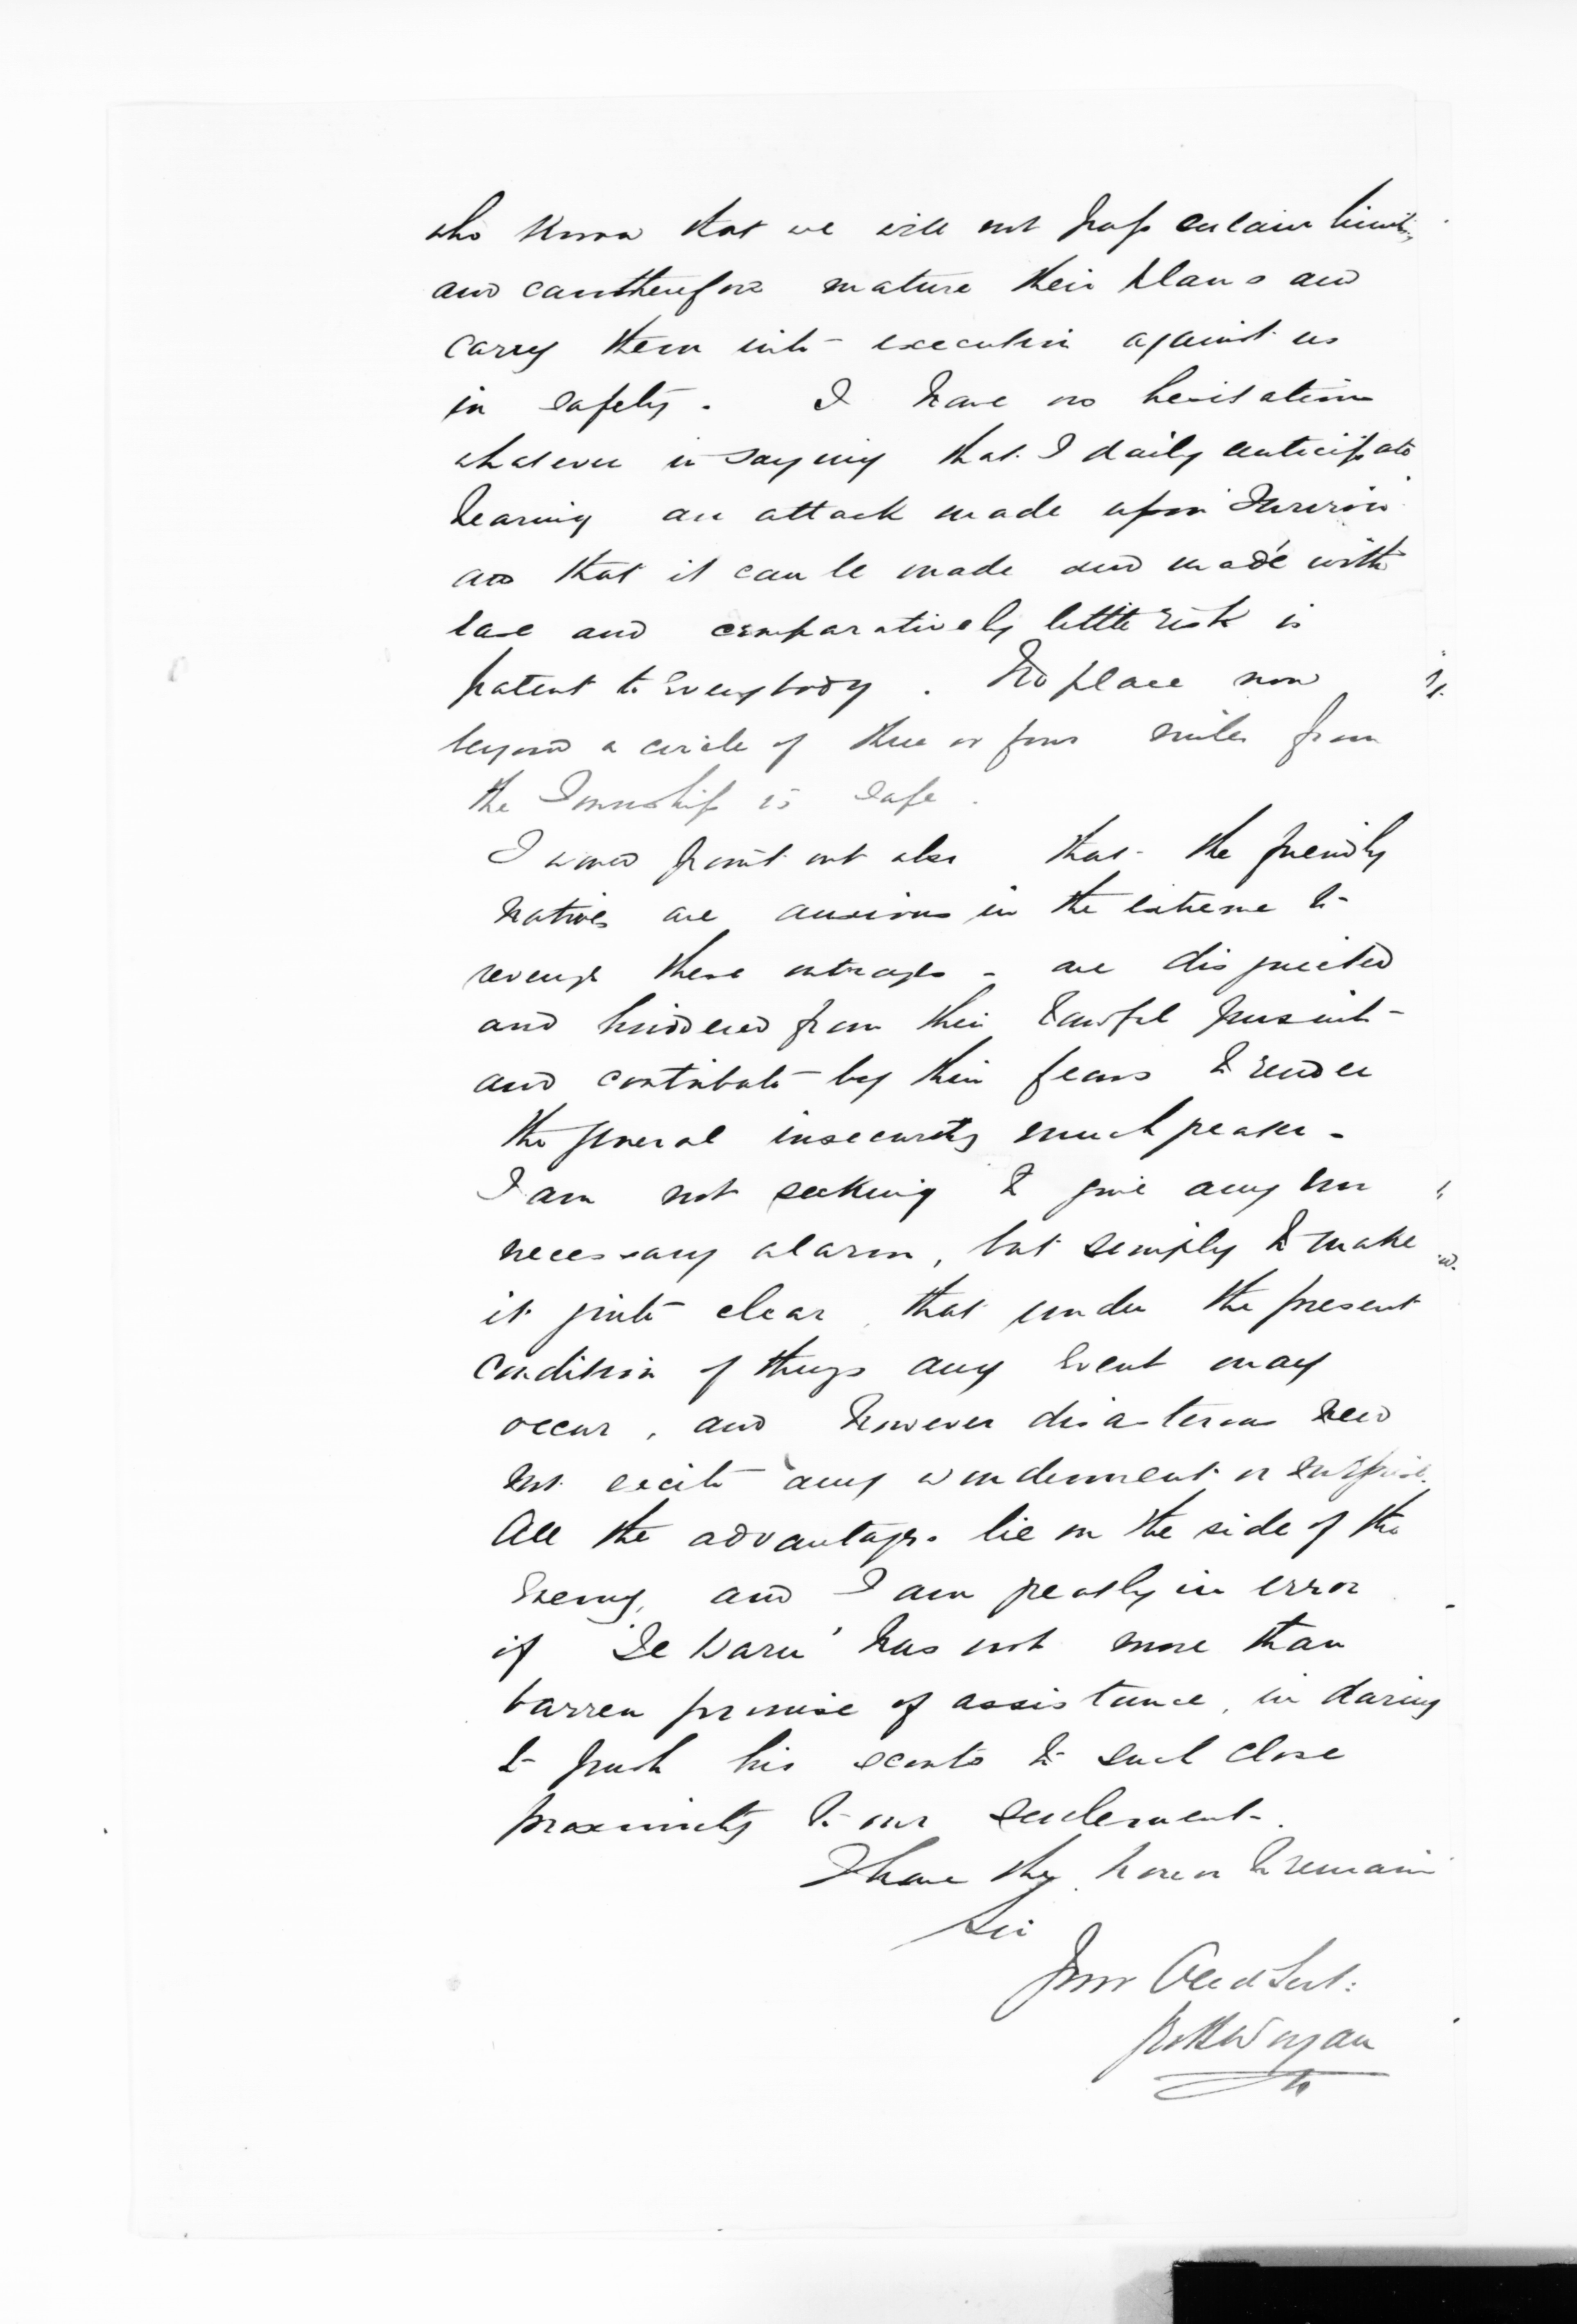 who know that we will not pass certain limits,
and can therefore mature their plans and
carry them into execution against us
in safety. I have no hesitation
whatever in saying that I daily anticipate
hearing an attack made upon
and that it can be made and made with
ease and comparatively little risk is
patent to everybody. No place now
beyond a circle of three or four miles from
the Township is safe.
I would point out also that the friendly
Natives are anxious in the extreme to
revenge these outrages - are disquieted
and hindered from their lawful pursuits
and contribute by their fears to render
the general insecurity much greater -
I am not seeking to give any un
necessary alarm, but simply to make
it quite clear, that under the present
condition of things any event may
occur, and however disasterous need
not excite any wonderment or surprise.
All the advantages lie on the side of the
Enemy, and I am greatly in error
if 'Te Waru' has not more than
barren promise of assistance, in daring
to push his scouts to such close
proximity to our settlement.
I have the honor to remain
Sir
Your Obed Sert:
Wyllie